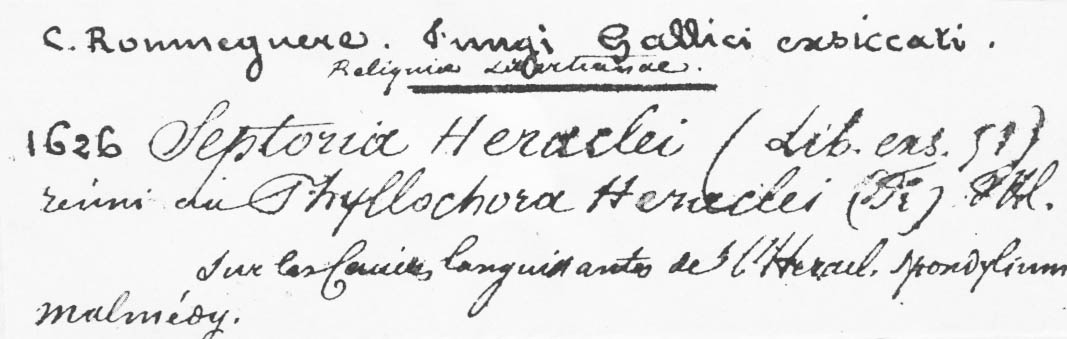 C. Roumeguere. Fungi Gallici exsiccati.
Reliquiae Libertianae.
1626 Septoria Heraclei (Lib. exs. 51)
réuni au Phyllochora Heraclei (Fr) Fkl.
Sur les languissantes de l'Heracl. spondylium
Malmédy.